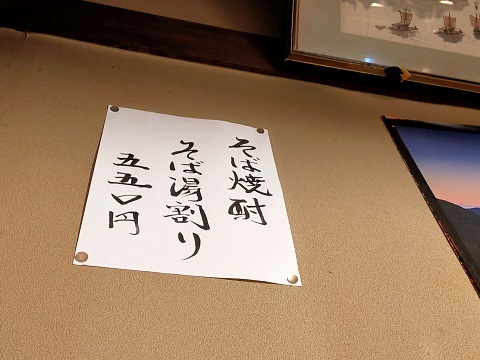 そば焼酎
そば湯割り
五五〇円